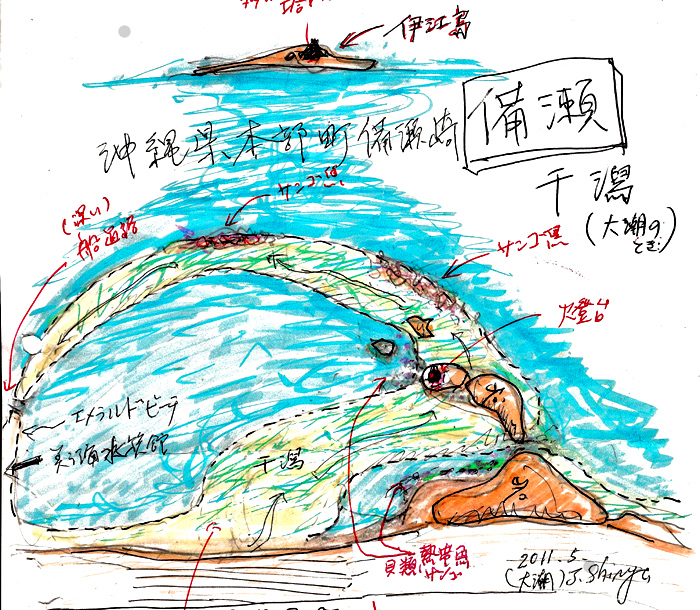 伊江島
備瀬
沖縄県本部町備瀬崎
干潟
(大潮の
とき)
サンゴ礁
(深い)
船通路
サンゴ礁
灯台
エメラルドビーチ
美ら海水族館
干潟
貝類 熱帯魚
サンゴ
2011.5.
(大潮)